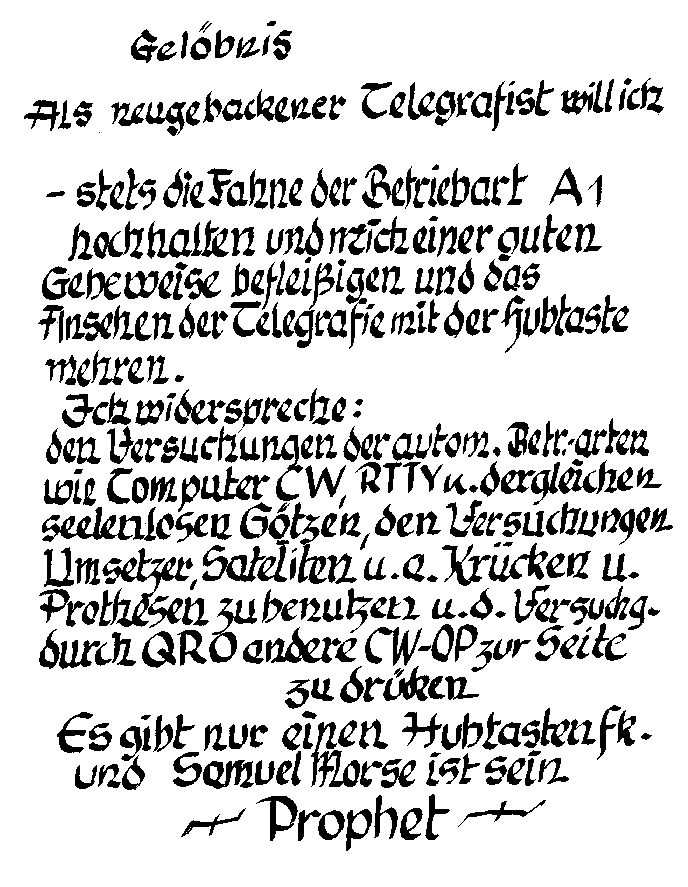 Gelöbnis
Als neugebackener Telegrafist will ich
- stets die Fahne der Betriebart A1
hochhalten und mich einer guten
Gebeweise befleißigen und das
Ansehen der Telegrafie mit der Hubtaste
mehren.
Ich widerspreche:
den Versuchungen der autom. Betr.-arten
wie Computer CW, RTTY u. dergleichen
seelenlosen Götzen, den Versuchungen
Umsetzer, Sateliten u. a. Krücken u.
Prothesen zu benutzen u. d. Versuchg.
durch QRO andere CW-OP zur Seite
zu drücken
Es gibt nur einen Hubtastenfk.
und Samuel Morse ist sein
Prophet